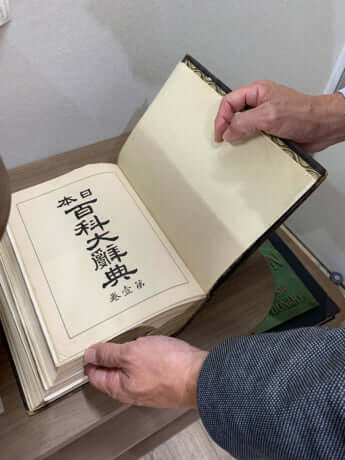 日本
百科大辭典
第壹卷